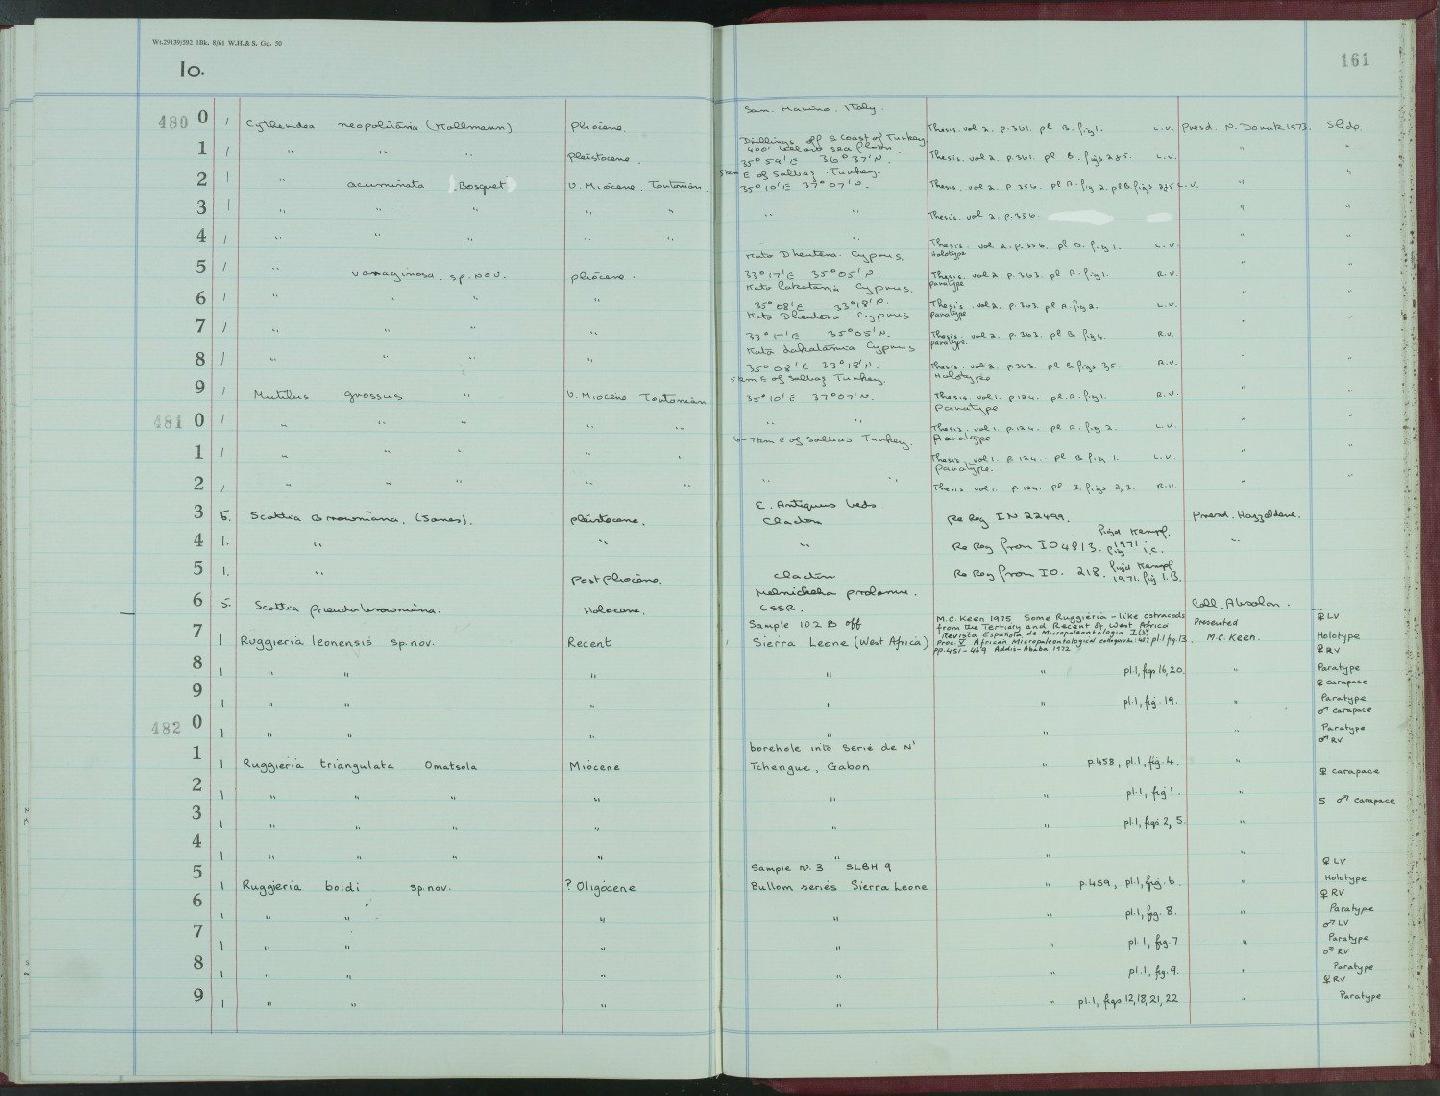 Wt.29139/592 1Bk. 8/61 W.H.& S. Gp. 50
161
Io.
San. Marino. Italy.
480 0 1 neopolitana (Kollmann) Pliocene. Thesis. vol 2. p.361. pl B. fig 1. L.V. Presd. 1973. Slide.
off S Coast of Turkey
400' below sea floor.
1 1 " " " Pleistocene. 35° 59'E 36° 37'N. Thesis. vol 2. p.361. pl B. figs 2&5. L.V. " "
5km E of Salbaş Turkey.
2 1 " acuminata (Bosquet) U. Miocene Tortonian. 35° 10'E 37° 07'N. Thesis. vol 2. p.356. pl A. fig 2. pl B. figs 2&5 L.V. " "
3 1 " " " " " " " Thesis. vol 2. p.356. " "
4 1 " " " " " " Thesis. vol 2. p.356. pl A. fig 1. L.V. " "
Kato Dheutera. Cyprus. Holotype
5 1 " sp. nov. Pliocene. 33° 17'E 35° 05'N Thesis. vol 2 p.363. pl A. fig 1. R.V. " "
Kato Lakatamia Cyprus. Paratype
6 1 " " " " 35° 08'E 33° 18'N. Thesis. vol 2. p.363. pl A. fig 2. L.V. " "
Kato Dheutera Cyprus Paratype
7 1 " " " " 35° 05'N. Thesis. vol 2. p.363. pl B R.V. " "
Kato Lakatamia Cyprus Paratype.
8 1 " " " " 35° 08'E 33° 18'N. Thesis. vol 2. p.363. pl B figs 3,5. R.V. " "
5km E of Salbaş Turkey. Holotype
9 1 Mutilus grossus " U. Miocene Tortonian 35° 10'E 37° 07'N. Thesis. vol 1. p.124. pl. A. fig 1. R.V. " "
Paratype
481 0 1 " " " " " " " Thesis. vol 1. p.124. pl A. fig 2. L.V. " "
6-7km E of Salbaş Turkey. Paratype
1 1 " " " " " Thesis vol 1. p.124. pl B fig 1. L.V. " "
Paratype.
2 1 " " " " " " " Thesis vol 1. p.124. pl R.V. " "
E. Antiquus beds
3 5. Scottia browniana. (Jones). Pleistocene. Clacton Re Reg IN 22499. Presd. Hazzeldene.
4 1. " " " Re Reg from IO 4813. figd Kempf. 1971 fig 1.C. "
5 1. " Post Pliocene. Clacton Re Reg from IO. 218. figd Kempf 1971. fig 1.B.
6 5. Scottia pseudobrowniana. Holocene. CSSR. Coll. Absolon.
Sample 102 B off M.C. Keen 1975 Some Ruggieria - like ostracods from the Tertiary and Recent of West Africa Presented ♀ LV
7 1 Ruggieria leonensis sp. nov. Recent Sierra Leone (West Africa) Revista Española de Micropaleontologia Proc. V African Micropaleontological colloquium: pl.1 fig.13. pp. 451-469 Addis-Ababa 1972 M.C. Keen. Holotype
♀ RV
8 1 " " " " " pl.1, figs 16,20. " Paratype
♀ carapace
9 1 " " " " " pl.1, fig. 19. " Paratype
♂ carapace
482 0 1 " " " " " " Paratype
♂ RV
borehole into Serie de N'
1 1 Ruggieria triangulata Omatsola Miocene Tchengue, Gabon " p.458, pl.1, fig. 4. "
♀ carapace
2 1 " " " " " " pl.1, fig 1. "
5 ♂ carapace
3 1 " " " " " " pl.1, figs 2, 5. "
4 1 " " " " " " "
Sample n. 3 SLBH 9 ♀ LV
5 1 Ruggieria boidi sp. nov. ? Oligocene Bullom series Sierra Leone " p.459, pl.1, fig. 6. " Holotype
♀ RV
6 1 " " " " " pl.1, fig. 8. " Paratype
♂ LV
7 1 " " " " " pl. 1, fig. 7 " Paratype
♂ RV
8 1 " " " " " pl.1, fig. 9. " Paratype
♀ RV
9 1 " " " " " pl.1, figs 12,18,21,22 " Paratype